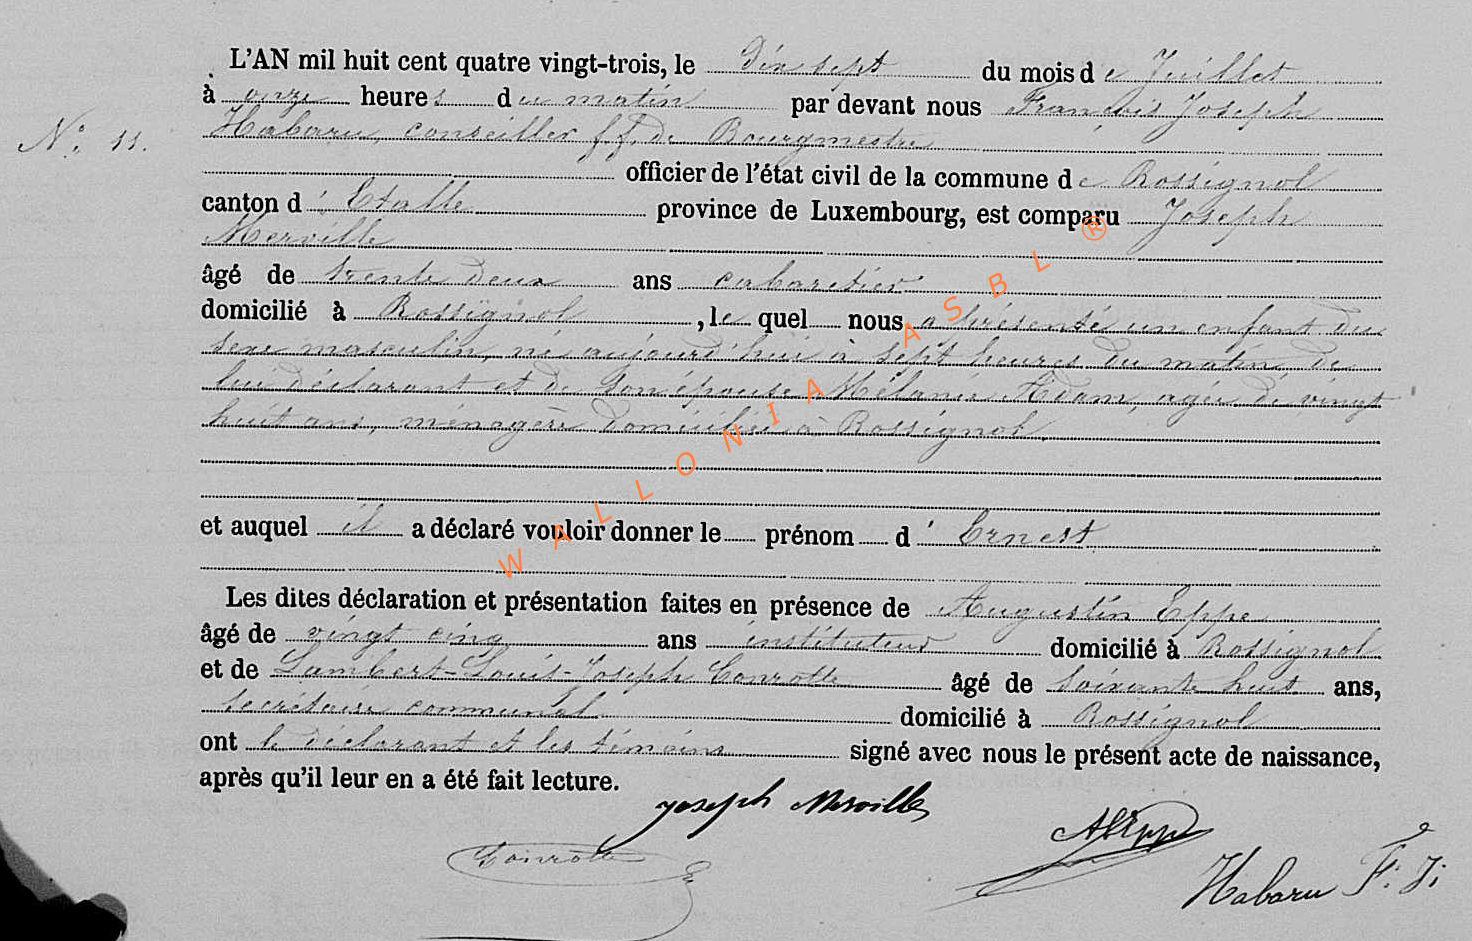 L'AN mil huit cent quatre vingt-trois, le dix sept du mois de Juillet
à onze heures du matin par devant nous François Joseph
N° 11. Habaru, conseiller f.f. de Bourgmestre
officier de l'état civil de la commune de Rossignol
canton d'Etalle province de Luxembourg, est comparu Joseph
Merville
âgé de trente deux ans cabaretier
domicilié à Rossignol, le quel nous a présenté un enfant du
sexe masculin, né aujourd'hui à sept heures du matin de
lui déclarant et de son épouse Mélanie Adam, agée de vingt
huit ans, ménagère domiciliée à Rossignol
et auquel il a déclaré vouloir donner le prénom d'Ernest
Les dites déclaration et présentation faites en présence de Augustin Eppe
âgé de vingt cinq ans instituteur domicilié à Rossignol
et de Lambert-Louis-Joseph Conrotte âgé de soixante huit ans,
secrétaire communal domicilié à Rossignol
ont le déclarant et les témoins signé avec nous le présent acte de naissance,
après qu'il leur en a été fait lecture.
Joseph Merville
A Eppe
Conrotte
Habaru F. J.
WALLONIA ASBL ®